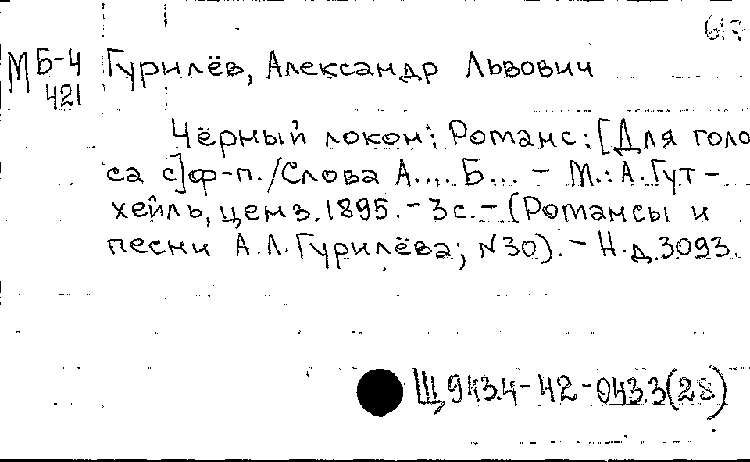 617
М Б-4 Гурилёв, Александр Львович
421
Чёрный локон: Романс: [Для голо
са с] ф-п. / Слова А.... Б... - М.: А. Гут-
хейль, ценз. 1895. - 3 с. - (Романсы и
песни А.Л. Гурилёва; N30). - Н.д. 3093.
Щ 943.4-42-043.3(28)